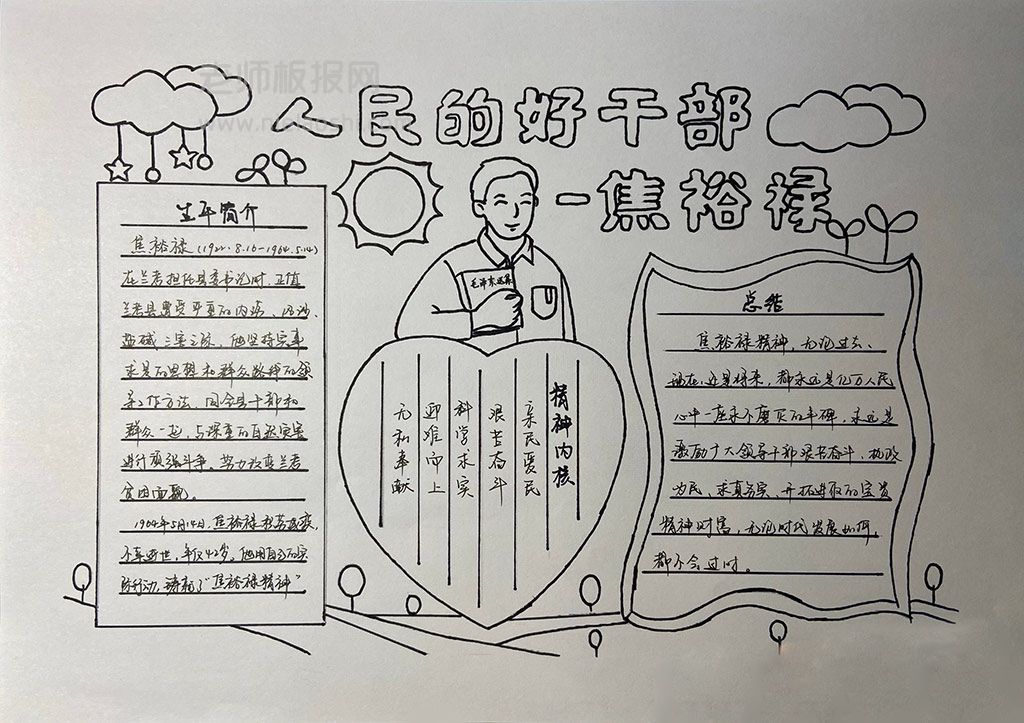 老师板报网
人民的好干部
-焦裕禄
毛泽东选集
生平简介
焦裕禄(1922.8.16-1964.5.14)
在兰考担任县委书记时,正值
兰考县遭受严重的内涝、风沙、
盐碱三害之际,他坚持实事
求是的思想和群众路线的领
导工作方法,同全县干部和
群众一起,与深重的自然灾害
进行顽强斗争,努力改变兰考
贫困面貌。
1964年5月14日,焦裕禄积劳成疾,
不幸逝世,年仅42岁。他用自己的实
际行动,铸就了“焦裕禄精神”
精神内核
亲民爱民
艰苦奋斗
科学求实
迎难而上
无私奉献
总结
焦裕禄精神,无论过去、
现在还是将来,都永远是亿万人民
心中一座永不磨灭的丰碑,永远是
激励广大领导干部艰苦奋斗、执政
为民、求真务实、开拓进取的宝贵
精神财富,无论时代发展如何,
都不会过时。